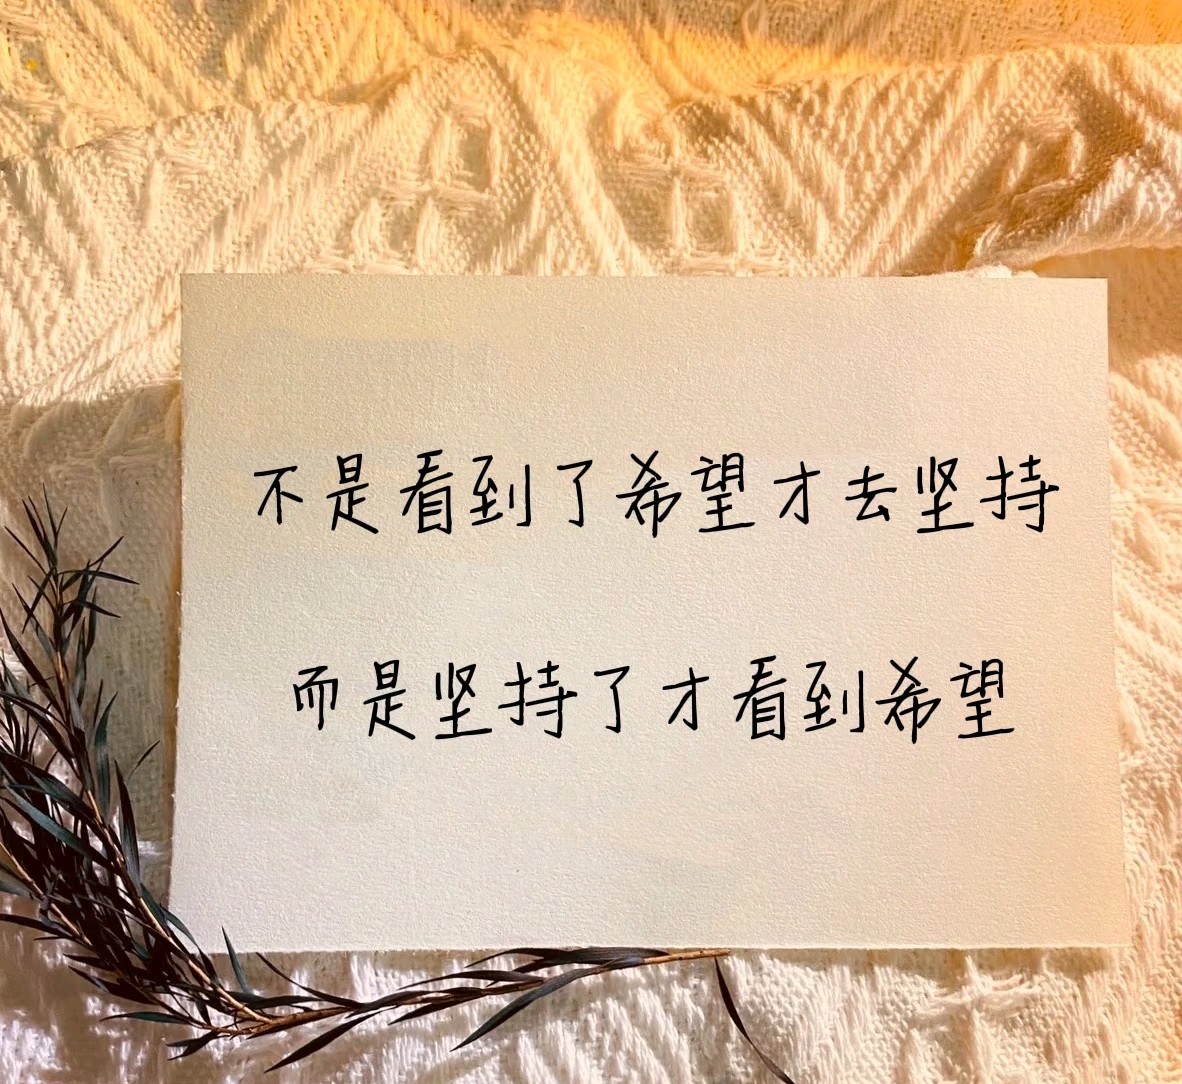 不是看到了希望才去坚持
而是坚持了才看到希望